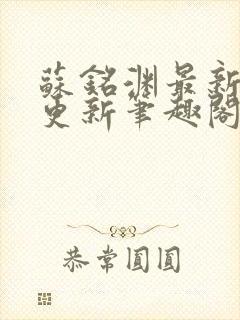 蘇銘淵最新
更新筆趣閣
恭常圓圓